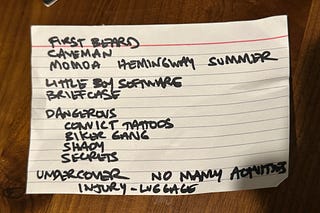 FIRST BEARD
CAVEMAN
MOMOA HEMINGWAY SUMMER
LITTLE BOY SOFTWARE
BRIEFCASE
DANGEROUS
CONVICT TATTOOS
BIKER GANG
SHADY
SECRETS
UNDERCOVER NO MANLY
INJURY - LUGGAGE